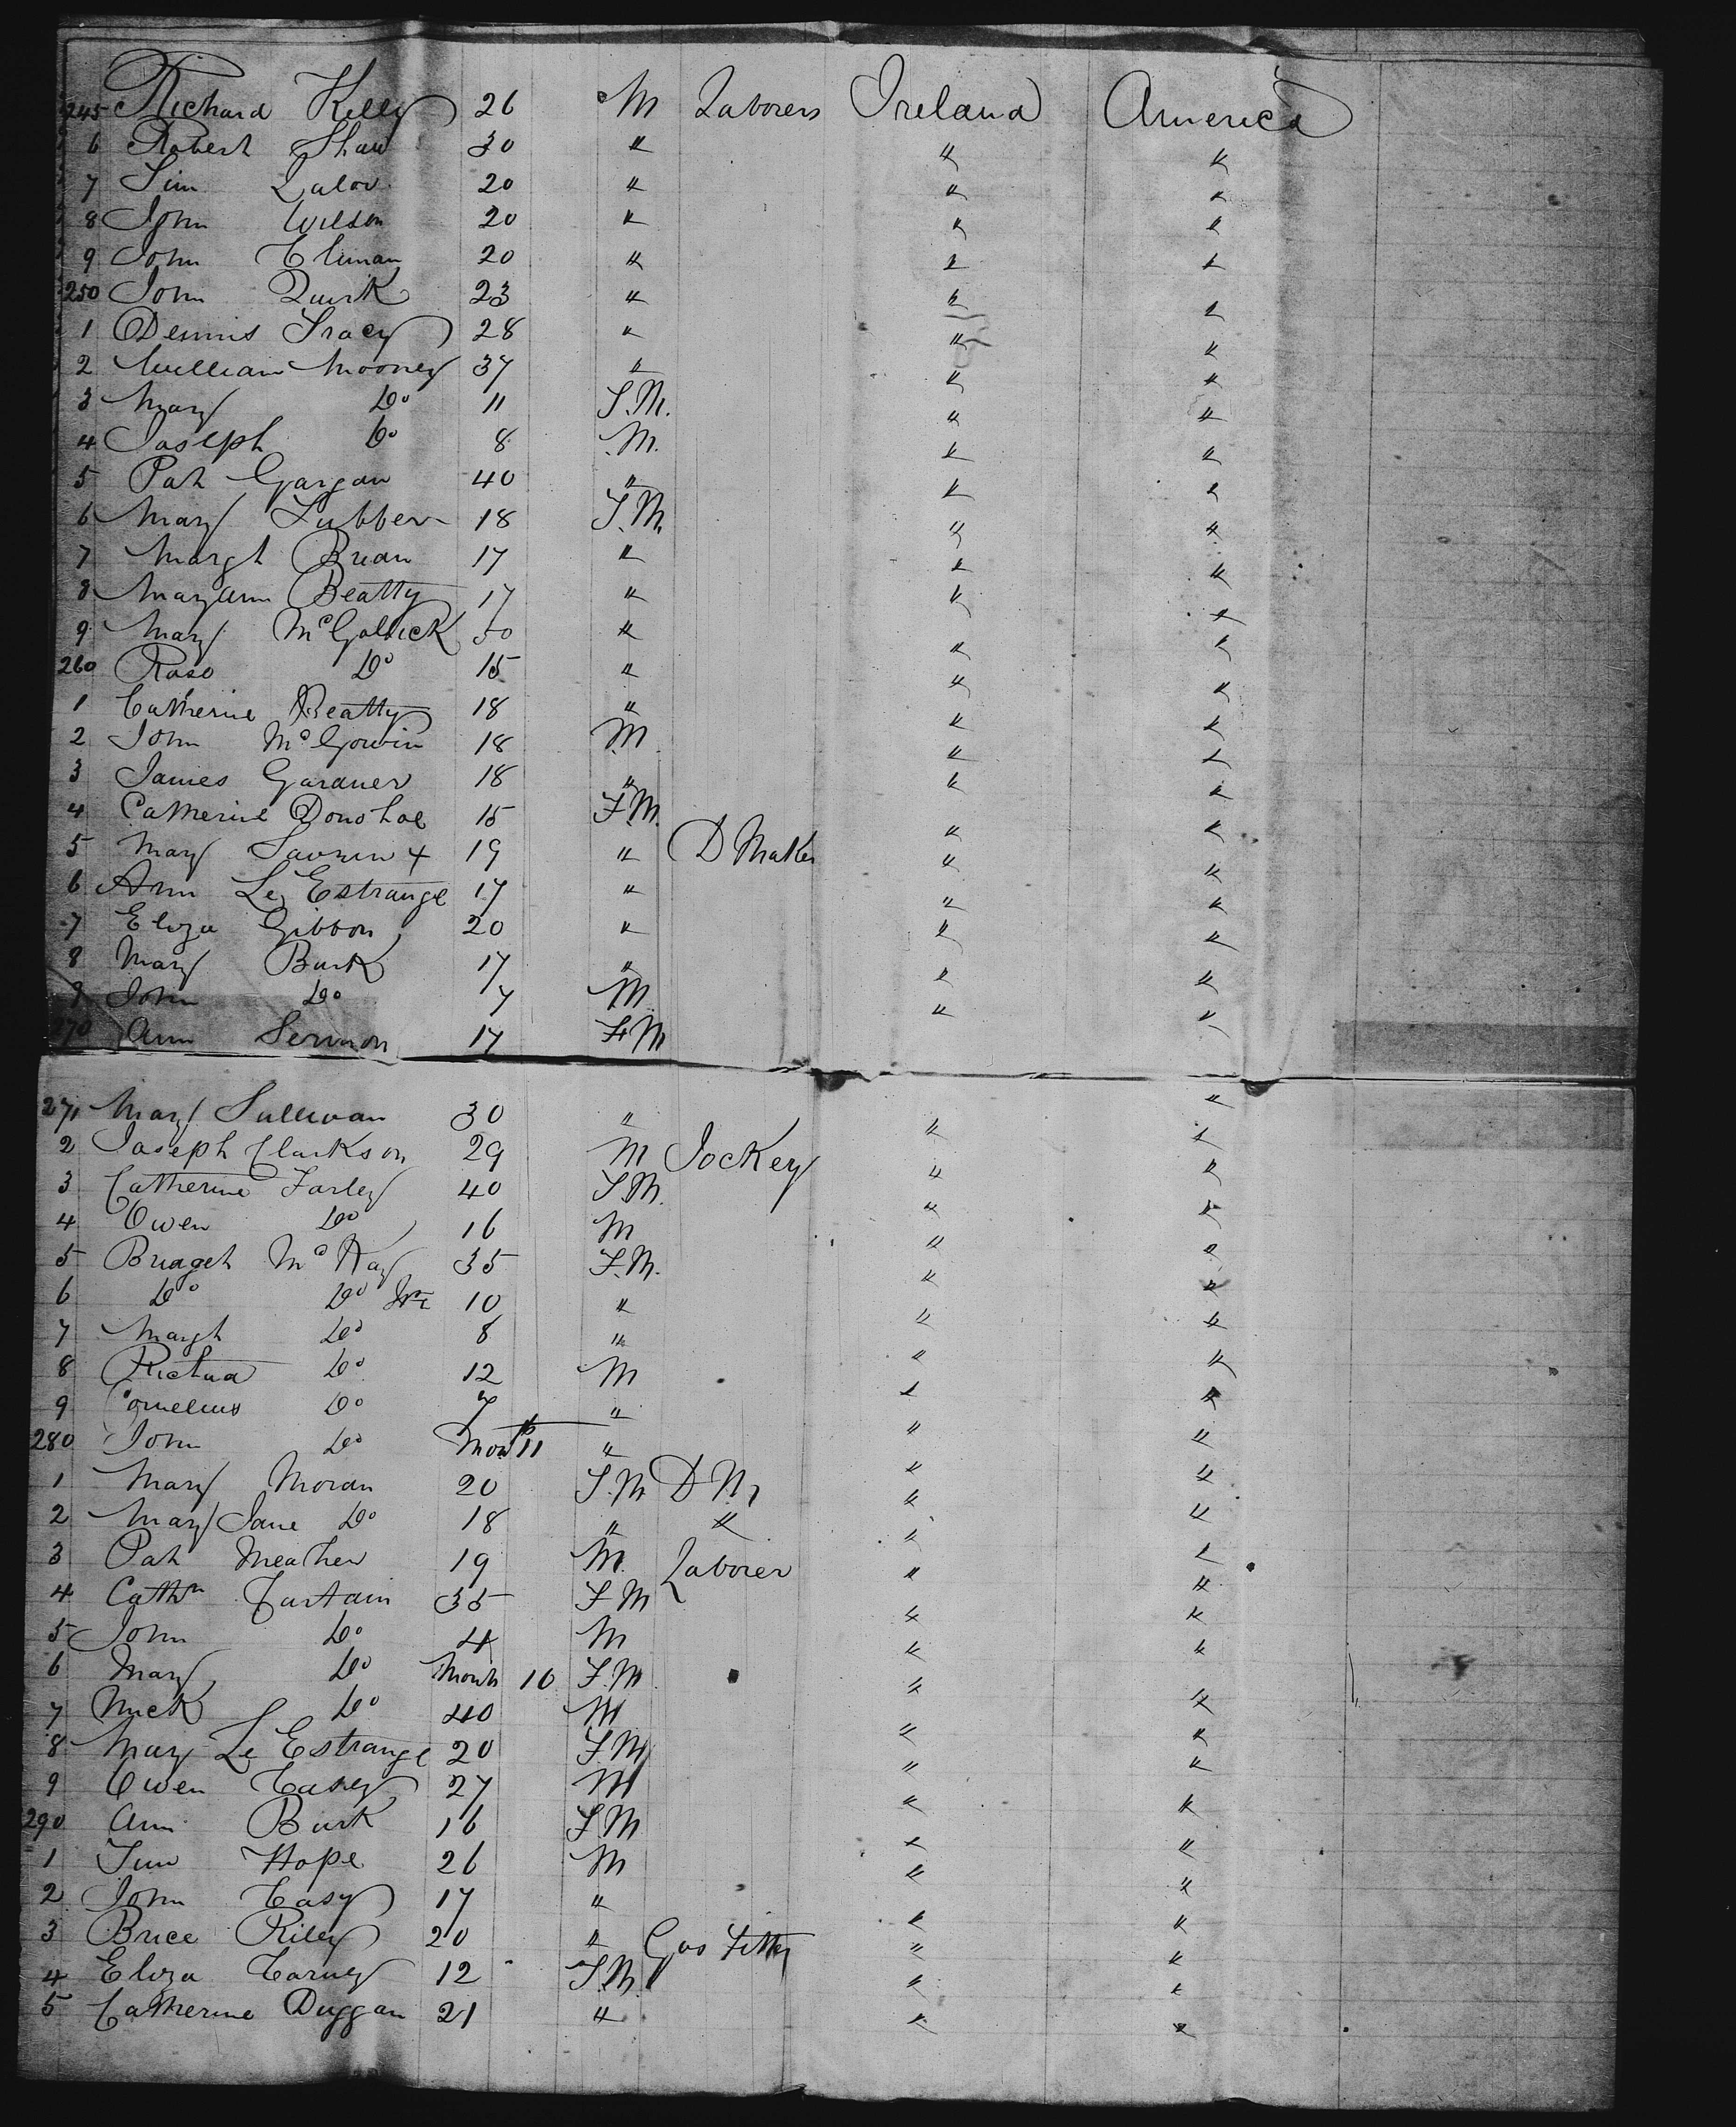 245 Richard Kelly 26 M Laborers Ireland America
6 Robert Shaw 30 " " "
7 Jim Lalor 20 " " "
8 John Wilson 20 " " "
9 John Climan 20 " " "
250 John Quirk 23 " " "
1 Dennis Tracy 28 " " "
2 William Mooney 37 " " "
3 Mary Do 11 F.M. " "
4 Joseph Do 8 M. " "
5 Pat Gargan 40 " " "
6 Mary Tubber 18 F.M. " "
7 Margt Brian 17 " " "
8 Maryann Beatty 17 " " "
9 Mary McGollick 50 " " "
260 Rose Do 15 " " "
1 Catherine Beatty 18 " " "
2 John McGowin 18 M " "
3 James Gardner 18 " " "
4 Catherine Donohoe 15 F.M. " "
5 Mary 19 " D Maker " "
6 Ann Le Estrange 17 " " "
7 Eliza Gibbon 20 " " "
8 Mary Burk 17 " " "
9 John Do 7 M " "
270 Ann Sermon 17 F M " "
271 Mary Sullivan 30 " " "
2 Joseph Clarkson 29 M Jockey " "
3 Catherine Farley 40 F.M. " "
4 Owen Do 16 M " "
5 Bridget McKay 35 F.M. " "
6 Do Do Jnr 10 " " "
7 Margt Do 8 " " "
8 Richd Do 12 M " "
9 Cornelius Do 7 " " "
280 John Do Mon 11 " " "
1 Mary Moran 20 F.M D M " "
2 Mary Jane Do 18 " " " "
3 Pat Meather 19 M. Laborer " "
4 Cathn Curtain 35 F M " "
5 John Do 4 M " "
6 Mary Do Month 10 F.M " "
7 Mick Do 40 M " "
8 Mary Le Estrange 20 F.M " "
9 Owen Casey 27 M " "
290 Ann Burk 16 F.M " "
1 Jim Hope 26 M " "
2 John Casy 17 " " "
3 Brice Riley 20 " Gas Fitter " "
4 Eliza Carney 12 F.M. " "
5 Catherine Duggan 21 " " "